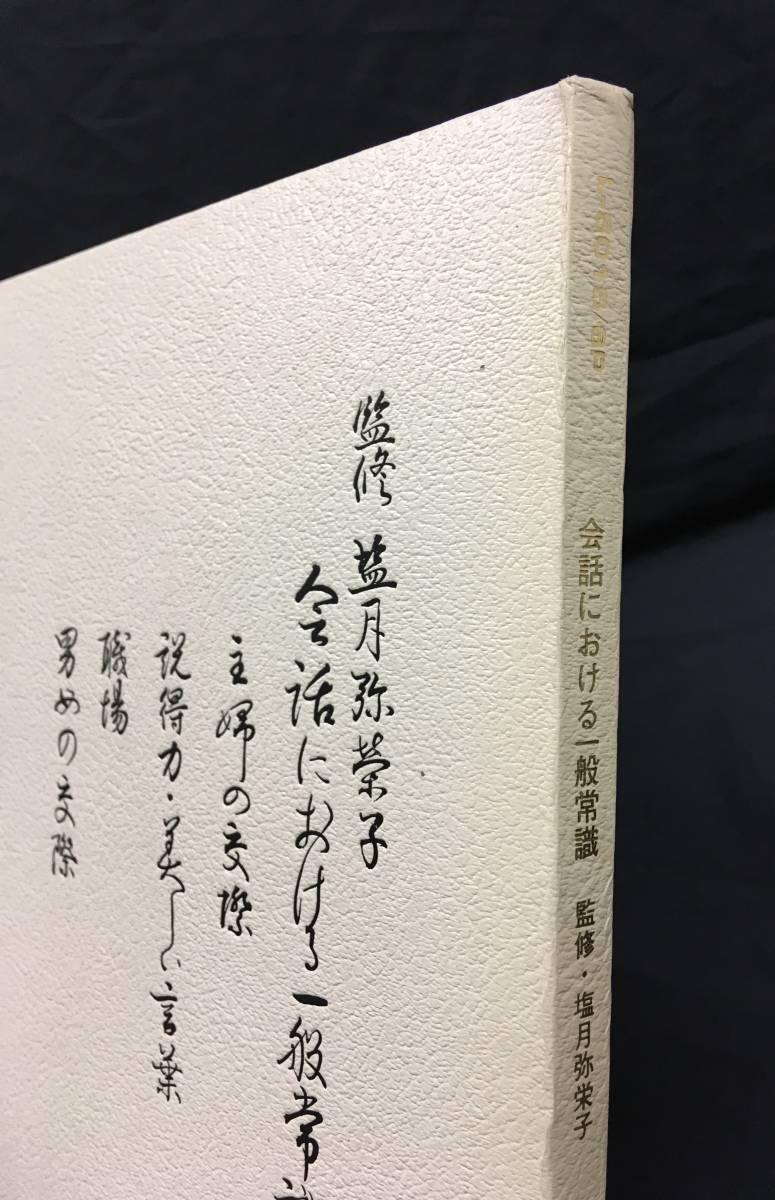 監修 塩月弥栄子
会話における一般常識
主婦の交際
説得力・美しい言葉
職場
男女の交際
会話における一般常識 監修・塩月弥栄子